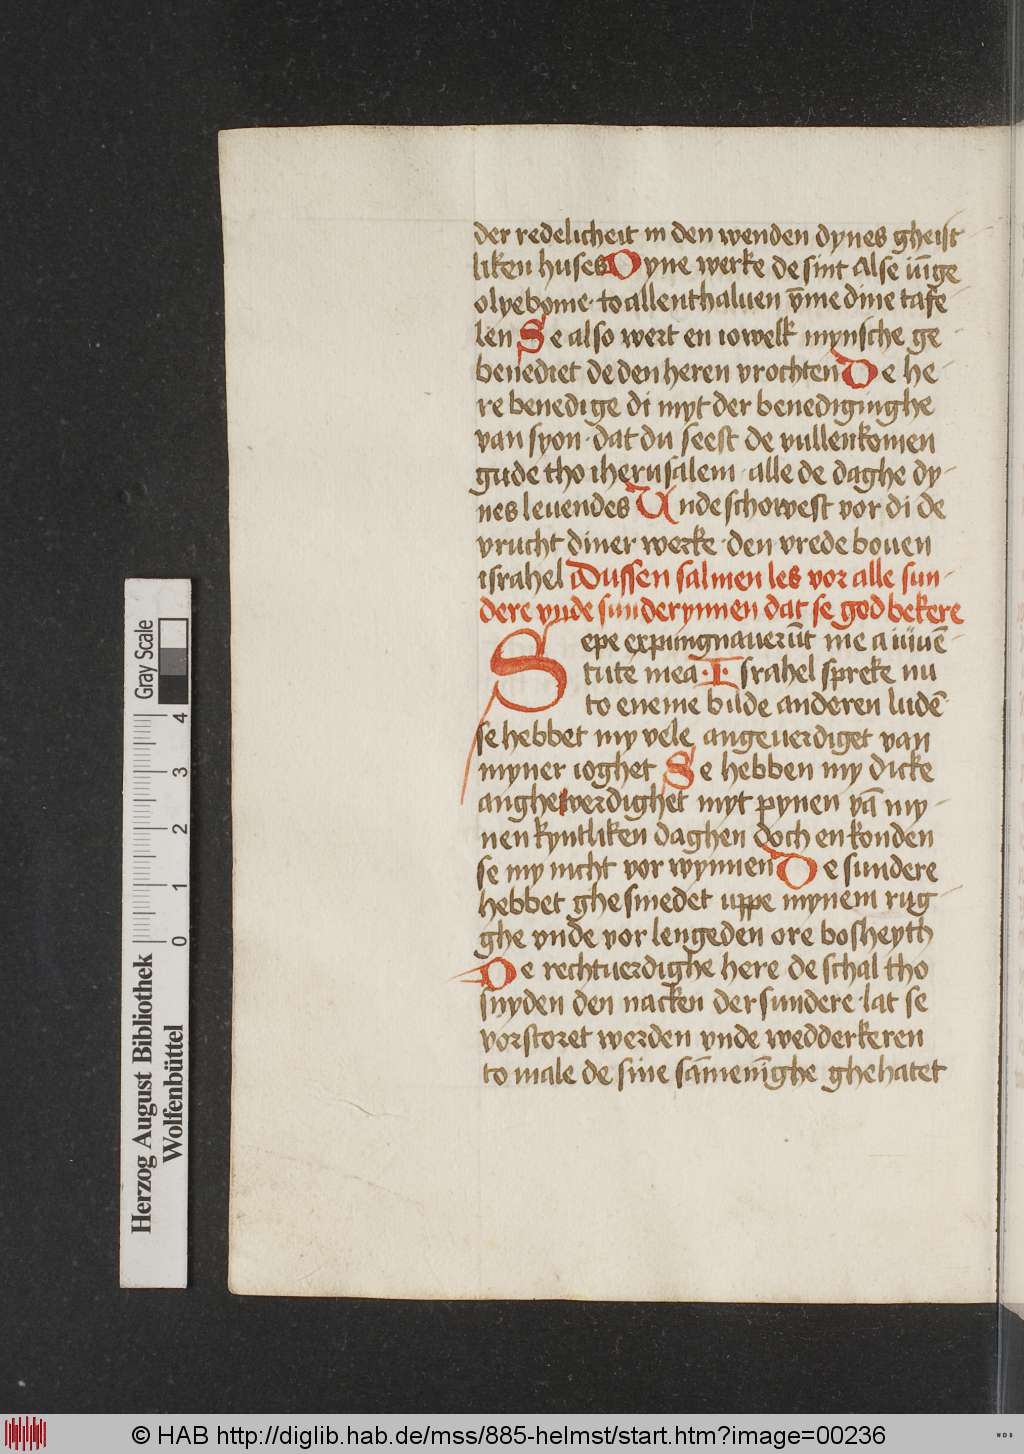 der redelicheit in den wenden dynes gheist
liken huses Dyne werke de sint Alse iu̅ge
olyebome · to allenthaluen v̅me dine tafe
len Se also wert en iowelk mynsche ge
benediet de den heren vrochten De he
re benedige di myt der benediginghe
van syon · dat du seest de vullenkomen
gude tho iherusalem · alle de daghe dy
nes leuendes Unde schowest vor di de
vrucht diner werke · den vrede bouen
israhel Dussen salmen les vor alle sun
dere vnde sunderynnen dat se god bekere
Sepe expungnaueru̅t me a iuue̅
tute mea · Israhel spreke nu
to eneme bilde anderen lude̅
se hebbet my vele angeuerdiget van
myner ioghet Se hebben my dicke
anghewerdighet myt pynen va̅ my
nen kyntliken daghen doch en konden
se my nicht vor wynnen De sundere
hebbet ghe smedet uppe mynem rug
ghe vnde vor lengeden ore bosheyth
De rechtuerdighe here de schal tho
snyden den nacken der sundere · lat se
vorstoret werden vnde wedderkeren
to male de sine sa̅meni̅ghe ghehatet
Herzog August Bibliothek
Wolfenbüttel
0 1 2 3 4
Gray Scale
© HAB http://diglib.hab.de/mss/885-helmst/start.htm?image=00236